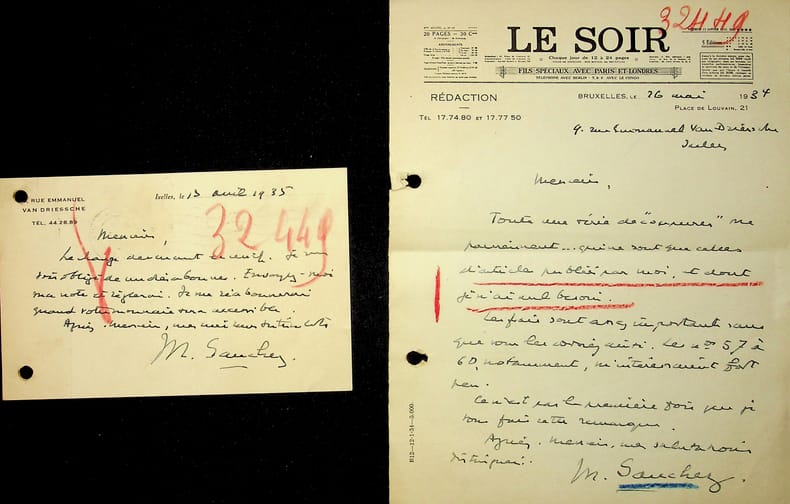 RUE EMMANUEL
VAN DRIESSCHE
TÉL. 44.28.89
Ixelles, le 13 avril 1935
32449
Monsieur,
Le belga devenant
obligé de me désabonner. Envoyez-moi
ma note et réglerai. Je me réabonnerai
quand votre monnaie sera accessible.
Agréez, monsieur, mes meilleurs
M. Sanchez.
32449
20 PAGES – 30 Cmes
5 Éditions
LE SOIR
Chaque jour de 12 à 24 pages
FILS SPÉCIAUX AVEC PARIS ET LONDRES
TÉLÉPHONE AVEC BERLIN - T.S.F. AVEC LE CONGO
RÉDACTION
BRUXELLES, LE 26 mai 1934
TÉL. 17.74.80 ET 17.77 50
PLACE DE LOUVAIN, 21
9, rue Emmanuel Van Driessche
Ixelles
Monsieur,
Toute une série de "coupures" me
parviennent... qui ne sont que celles
d'articles publiés par moi, et dont
je n'ai nul besoin.
Les frais sont assez importants sans
que vous les corsiez ainsi. Les nos 57 à
60, notamment, m'intéressent fort
peu.
Ce n'est pas la première fois que je
vous fais cette remarque.
Agréez, monsieur, mes salutations
distinguées.
M. Sanchez.
B12-12-1-34-3.000.